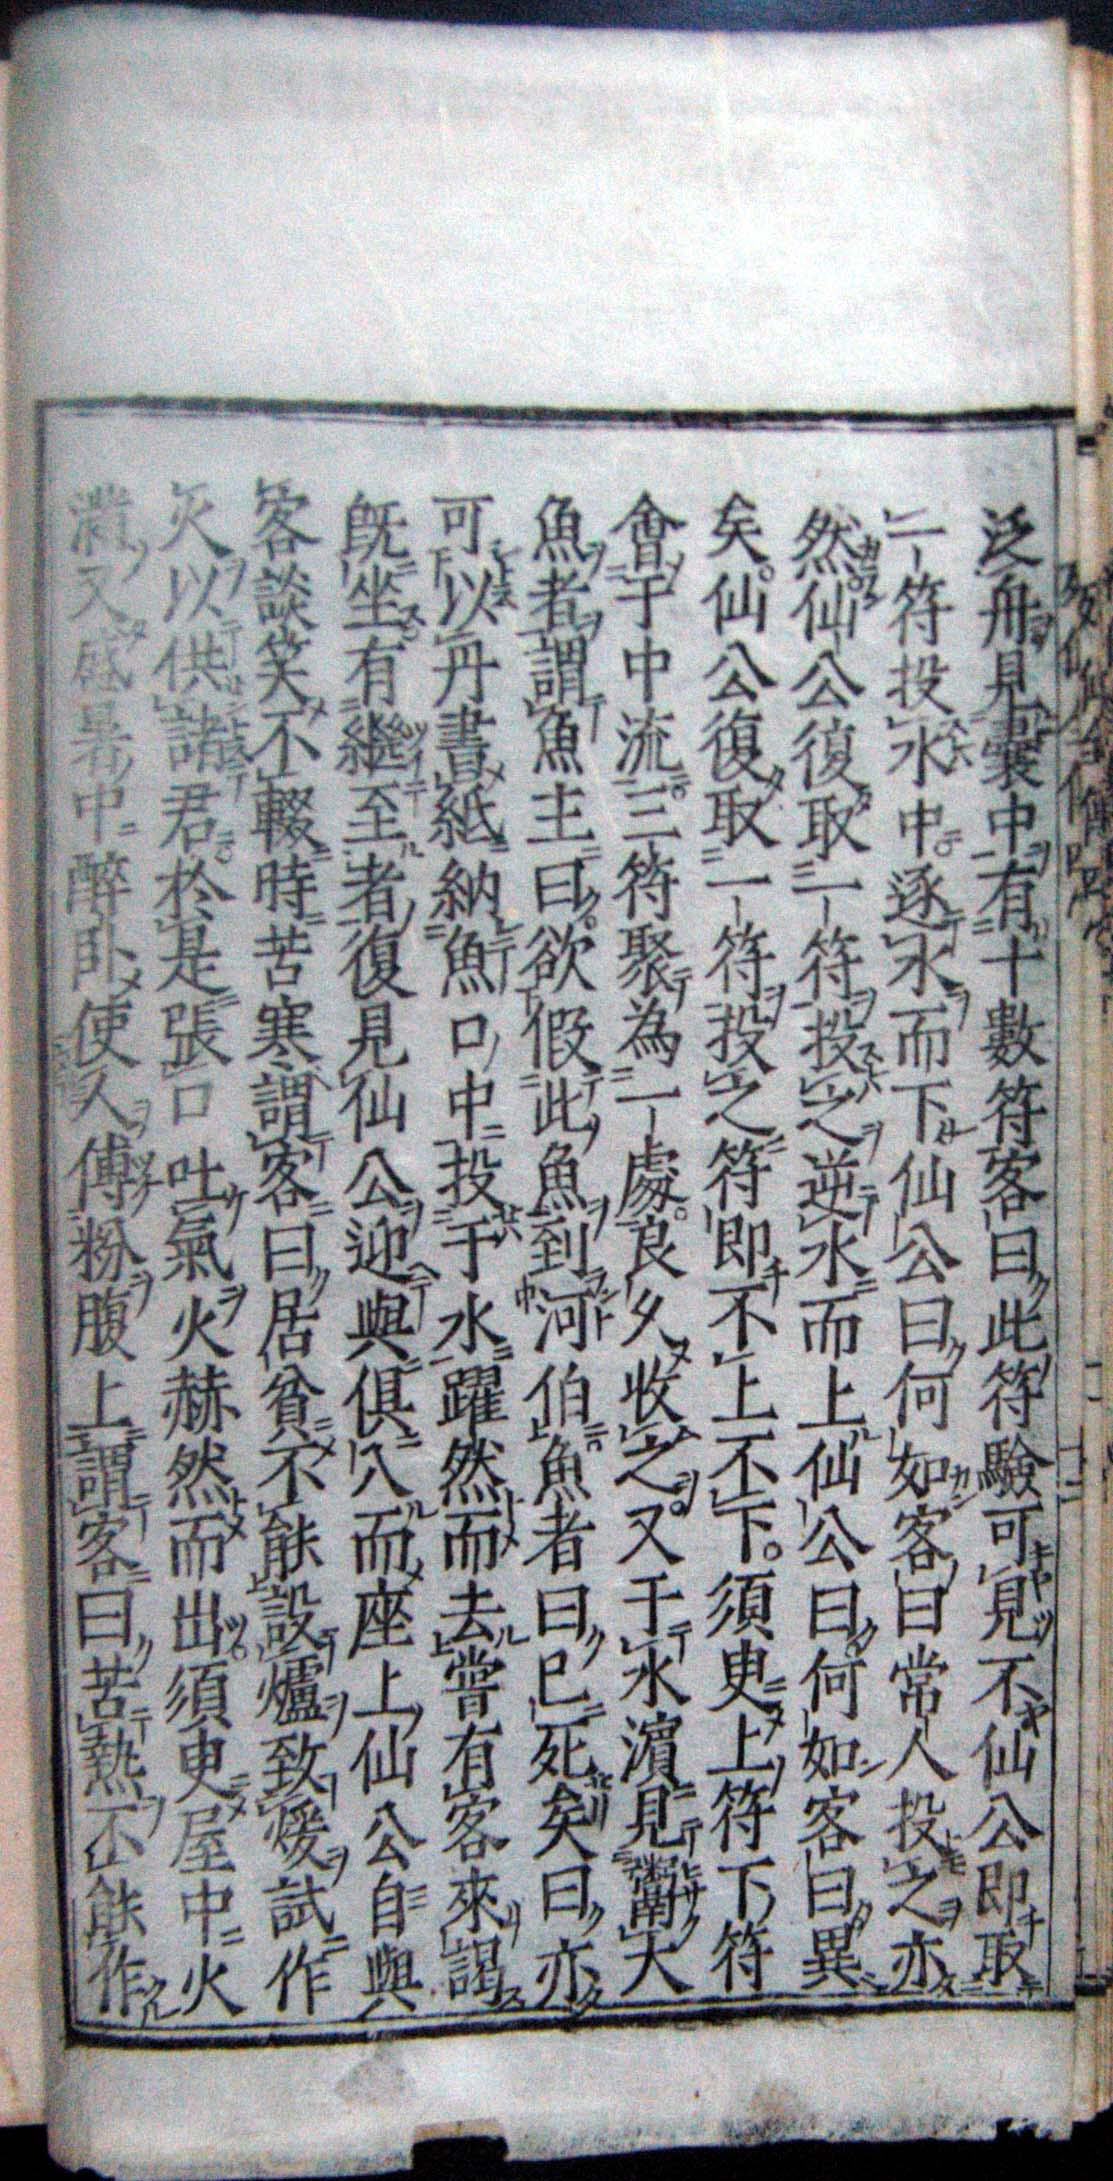 泛舟見囊中有十數符客曰此符驗可見不仙公即取
一符投水中逐水而下仙公曰何如客曰常人投之亦
然仙公復取一符投之逆水而上仙公曰何如客曰異
矣仙公復取一符投之符即不上不下須臾上符下符
會于中流三符聚為一處良久收之又于水濵見鬻大
魚者謂魚主曰欲假此魚到河伯魚者曰巳死矣曰亦
可以丹書紙納魚口中投于水躍然而去嘗有客來謁
既坐有繼至者復見仙公迎與俱入而座上仙公自與
客談笑不輟時苦寒謂客曰居貧不能設爐致煖試作
火以供諸君於是張口吐氣火赫然而出須臾屋中火
滿又盛暑中醉臥使人傅粉腹上謂客曰苦熱不能作